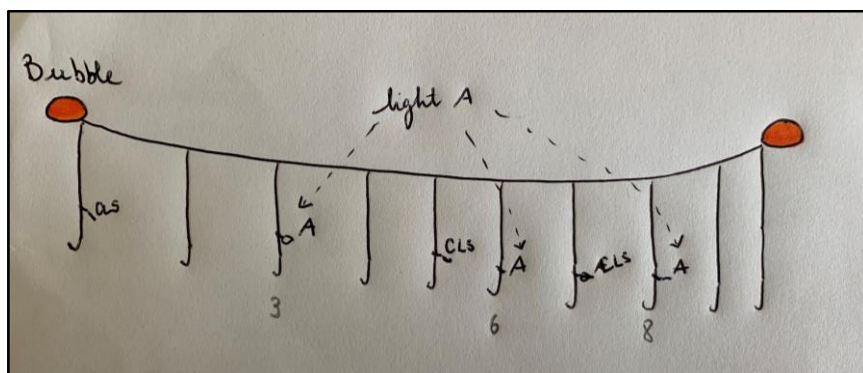 Bubble
light A
as
A
CLS
A
CLS
A
3
6
8